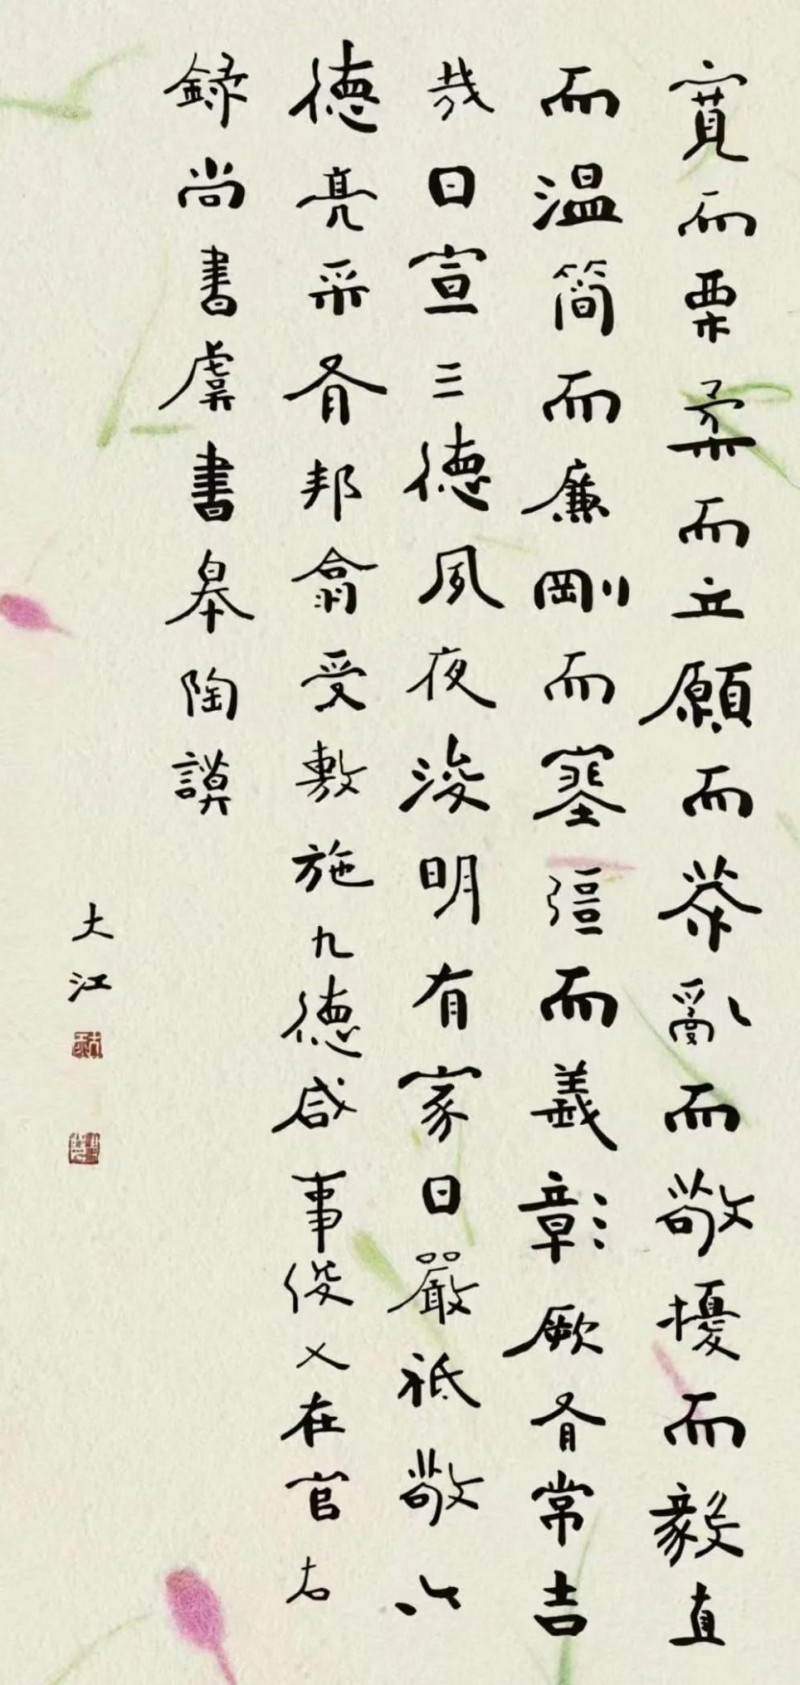 寬而栗柔而立願而恭亂而敬擾而毅直
而溫簡而廉剛而塞彊而義彰厥有常吉
哉日宣三德夙夜浚明有家日嚴祗敬六
德亮采有邦翕受敷施九德咸事俊乂在官右
錄尚書虞書皋陶謨
大江